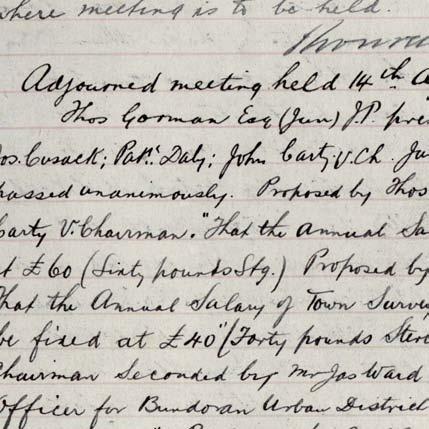 where meeting is to be held.
Adjourned meeting held 14th A
Thos Gorman Esq (Jun) J.P. pres
Jos. Cusack; Patk. Daly; John Carty V. Ch. Ja
passed unanimously. Proposed by Thos
Carty V. Chairman. "That the annual Sa
at £60 (Sixty pounds Stg.) Proposed by
That the Annual Salary of Town Survey
be fixed at £40" (Forty pounds Ster
Chairman Seconded by Mr Jas Ward
Officer for Bundoran Urban District